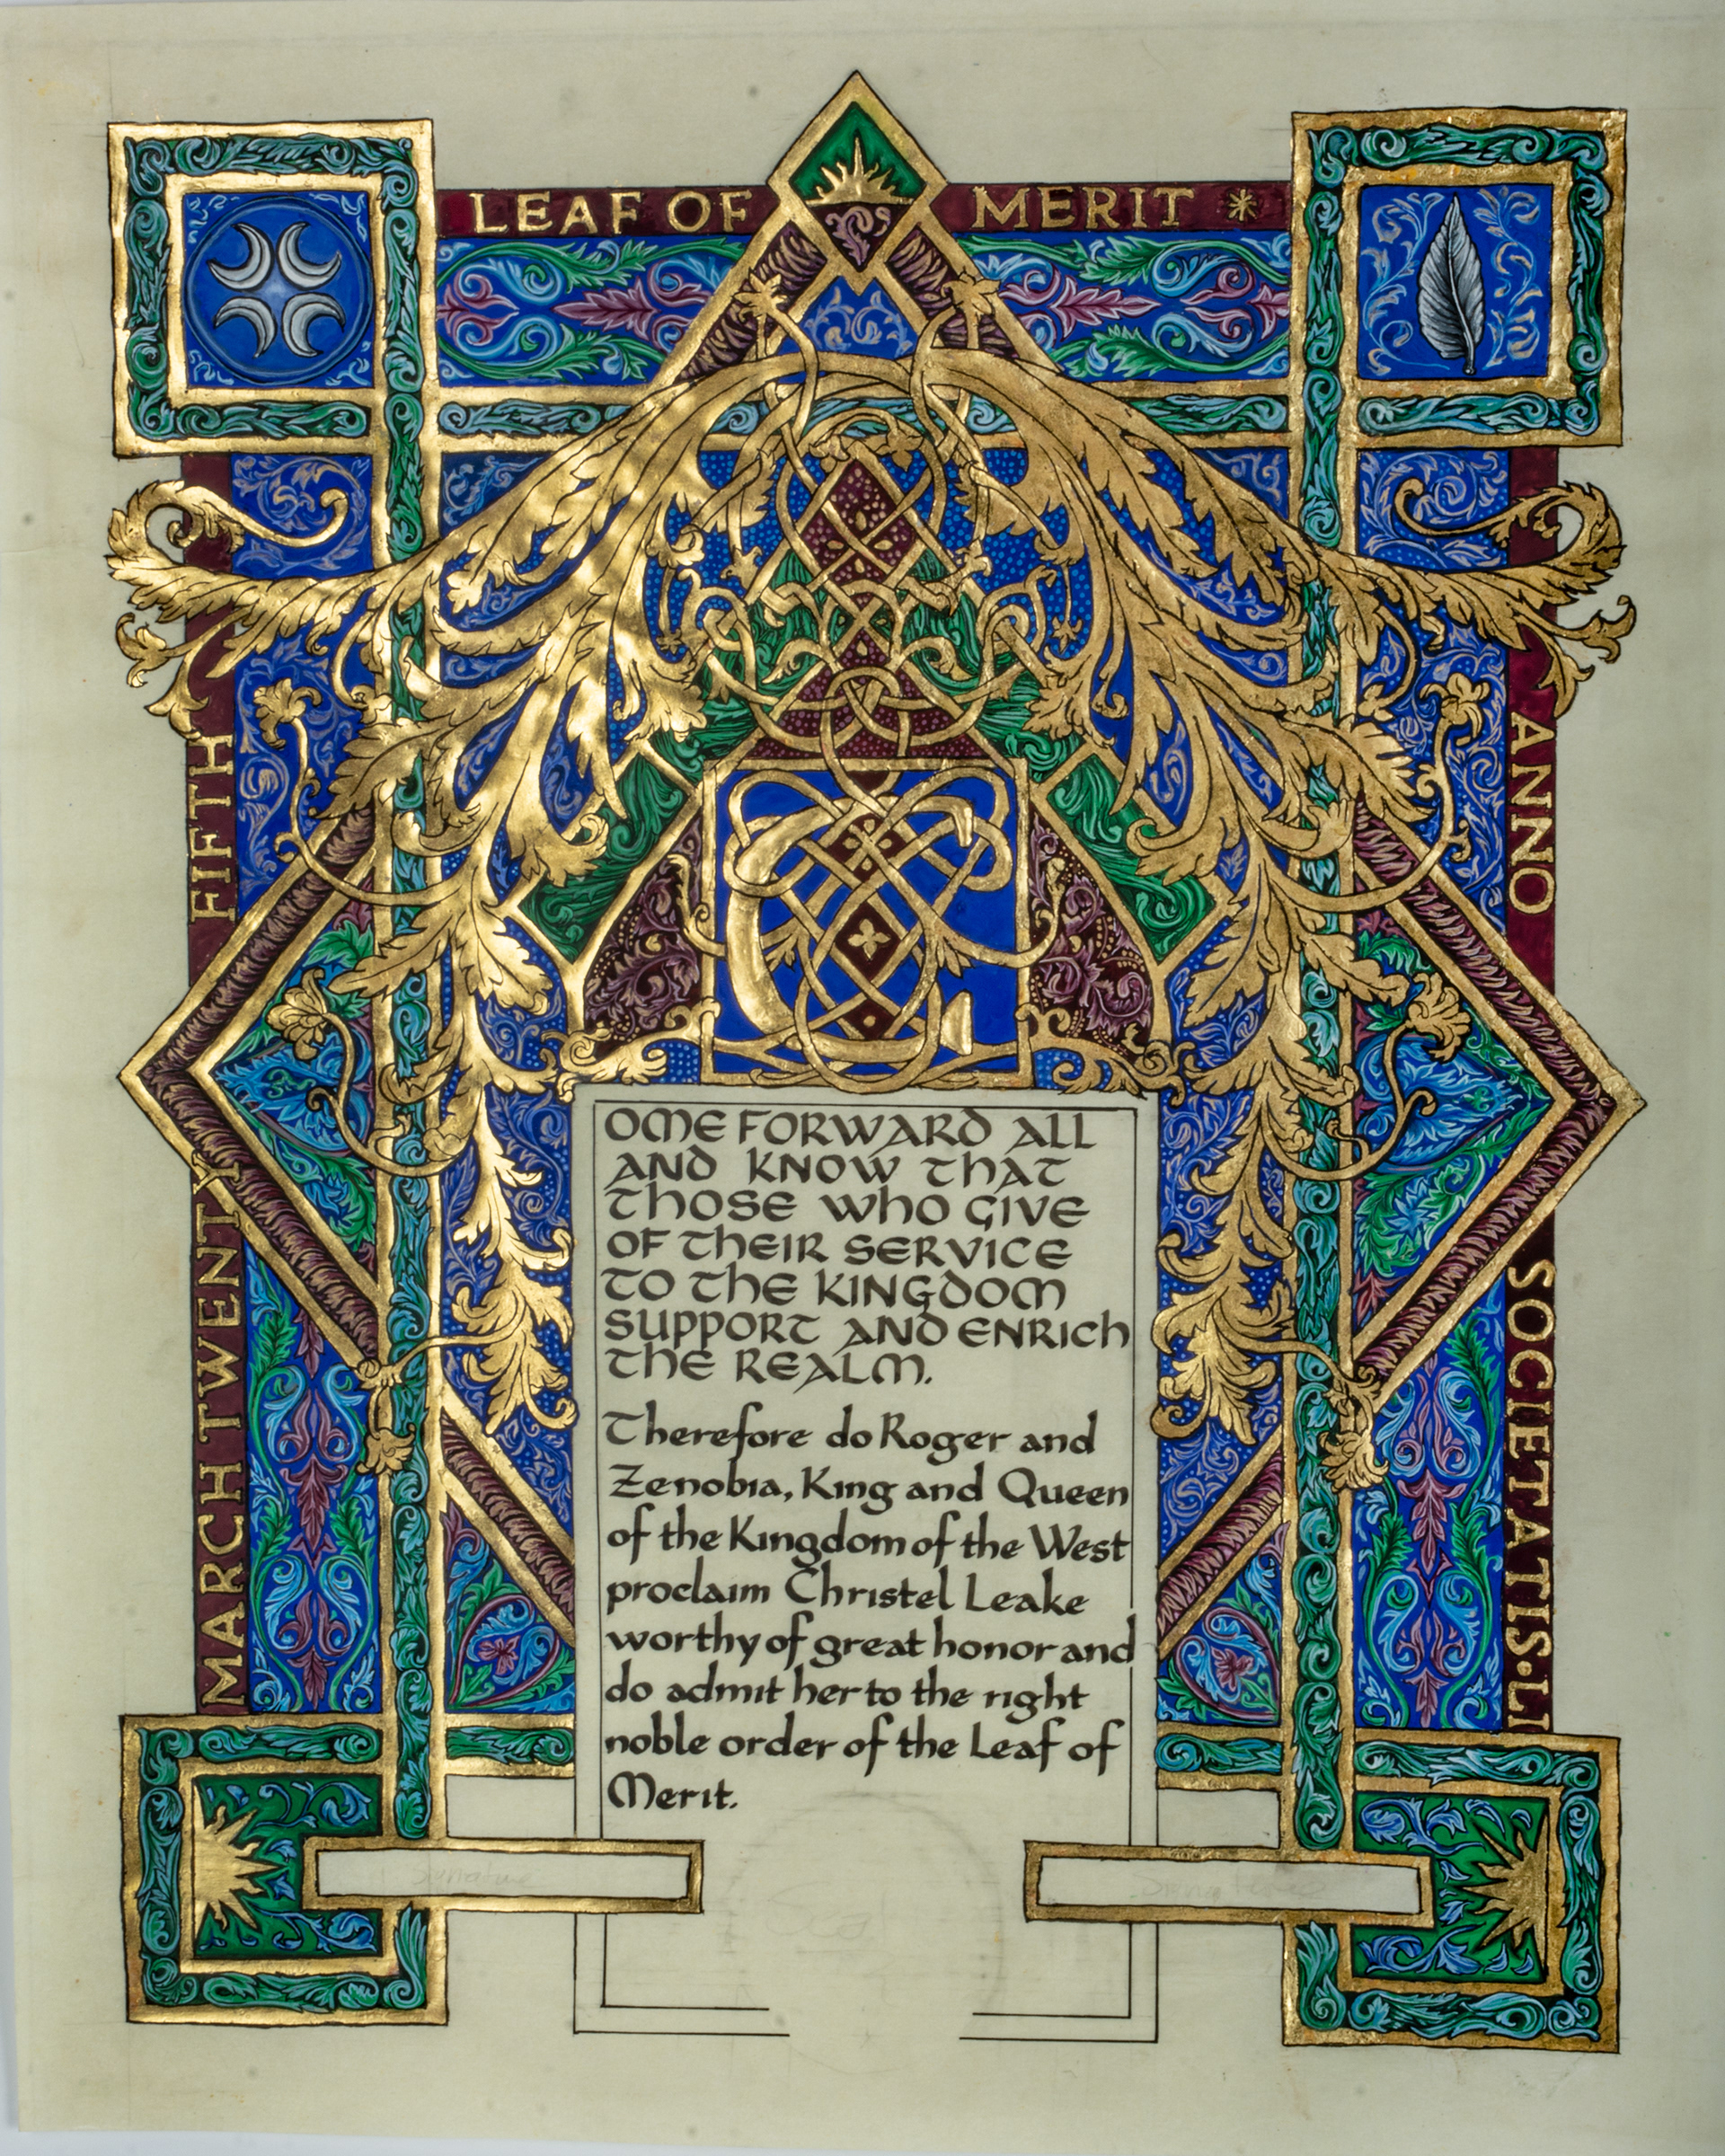 LEAF OF MERIT *
ANNO SOCIETATIS·LI
MARCH TWENTY FIFTH
COME FORWARD ALL
AND KNOW THAT
THOSE WHO GIVE
OF THEIR SERVICE
TO THE KINGDOM
SUPPORT AND ENRICH
THE REALM.
Therefore do Roger and
Zenobia, King and Queen
of the Kingdom of the West
proclaim Christel Leake
worthy of great honor and
do admit her to the right
noble order of the Leaf of
Merit.
Signature
Seal
Signature